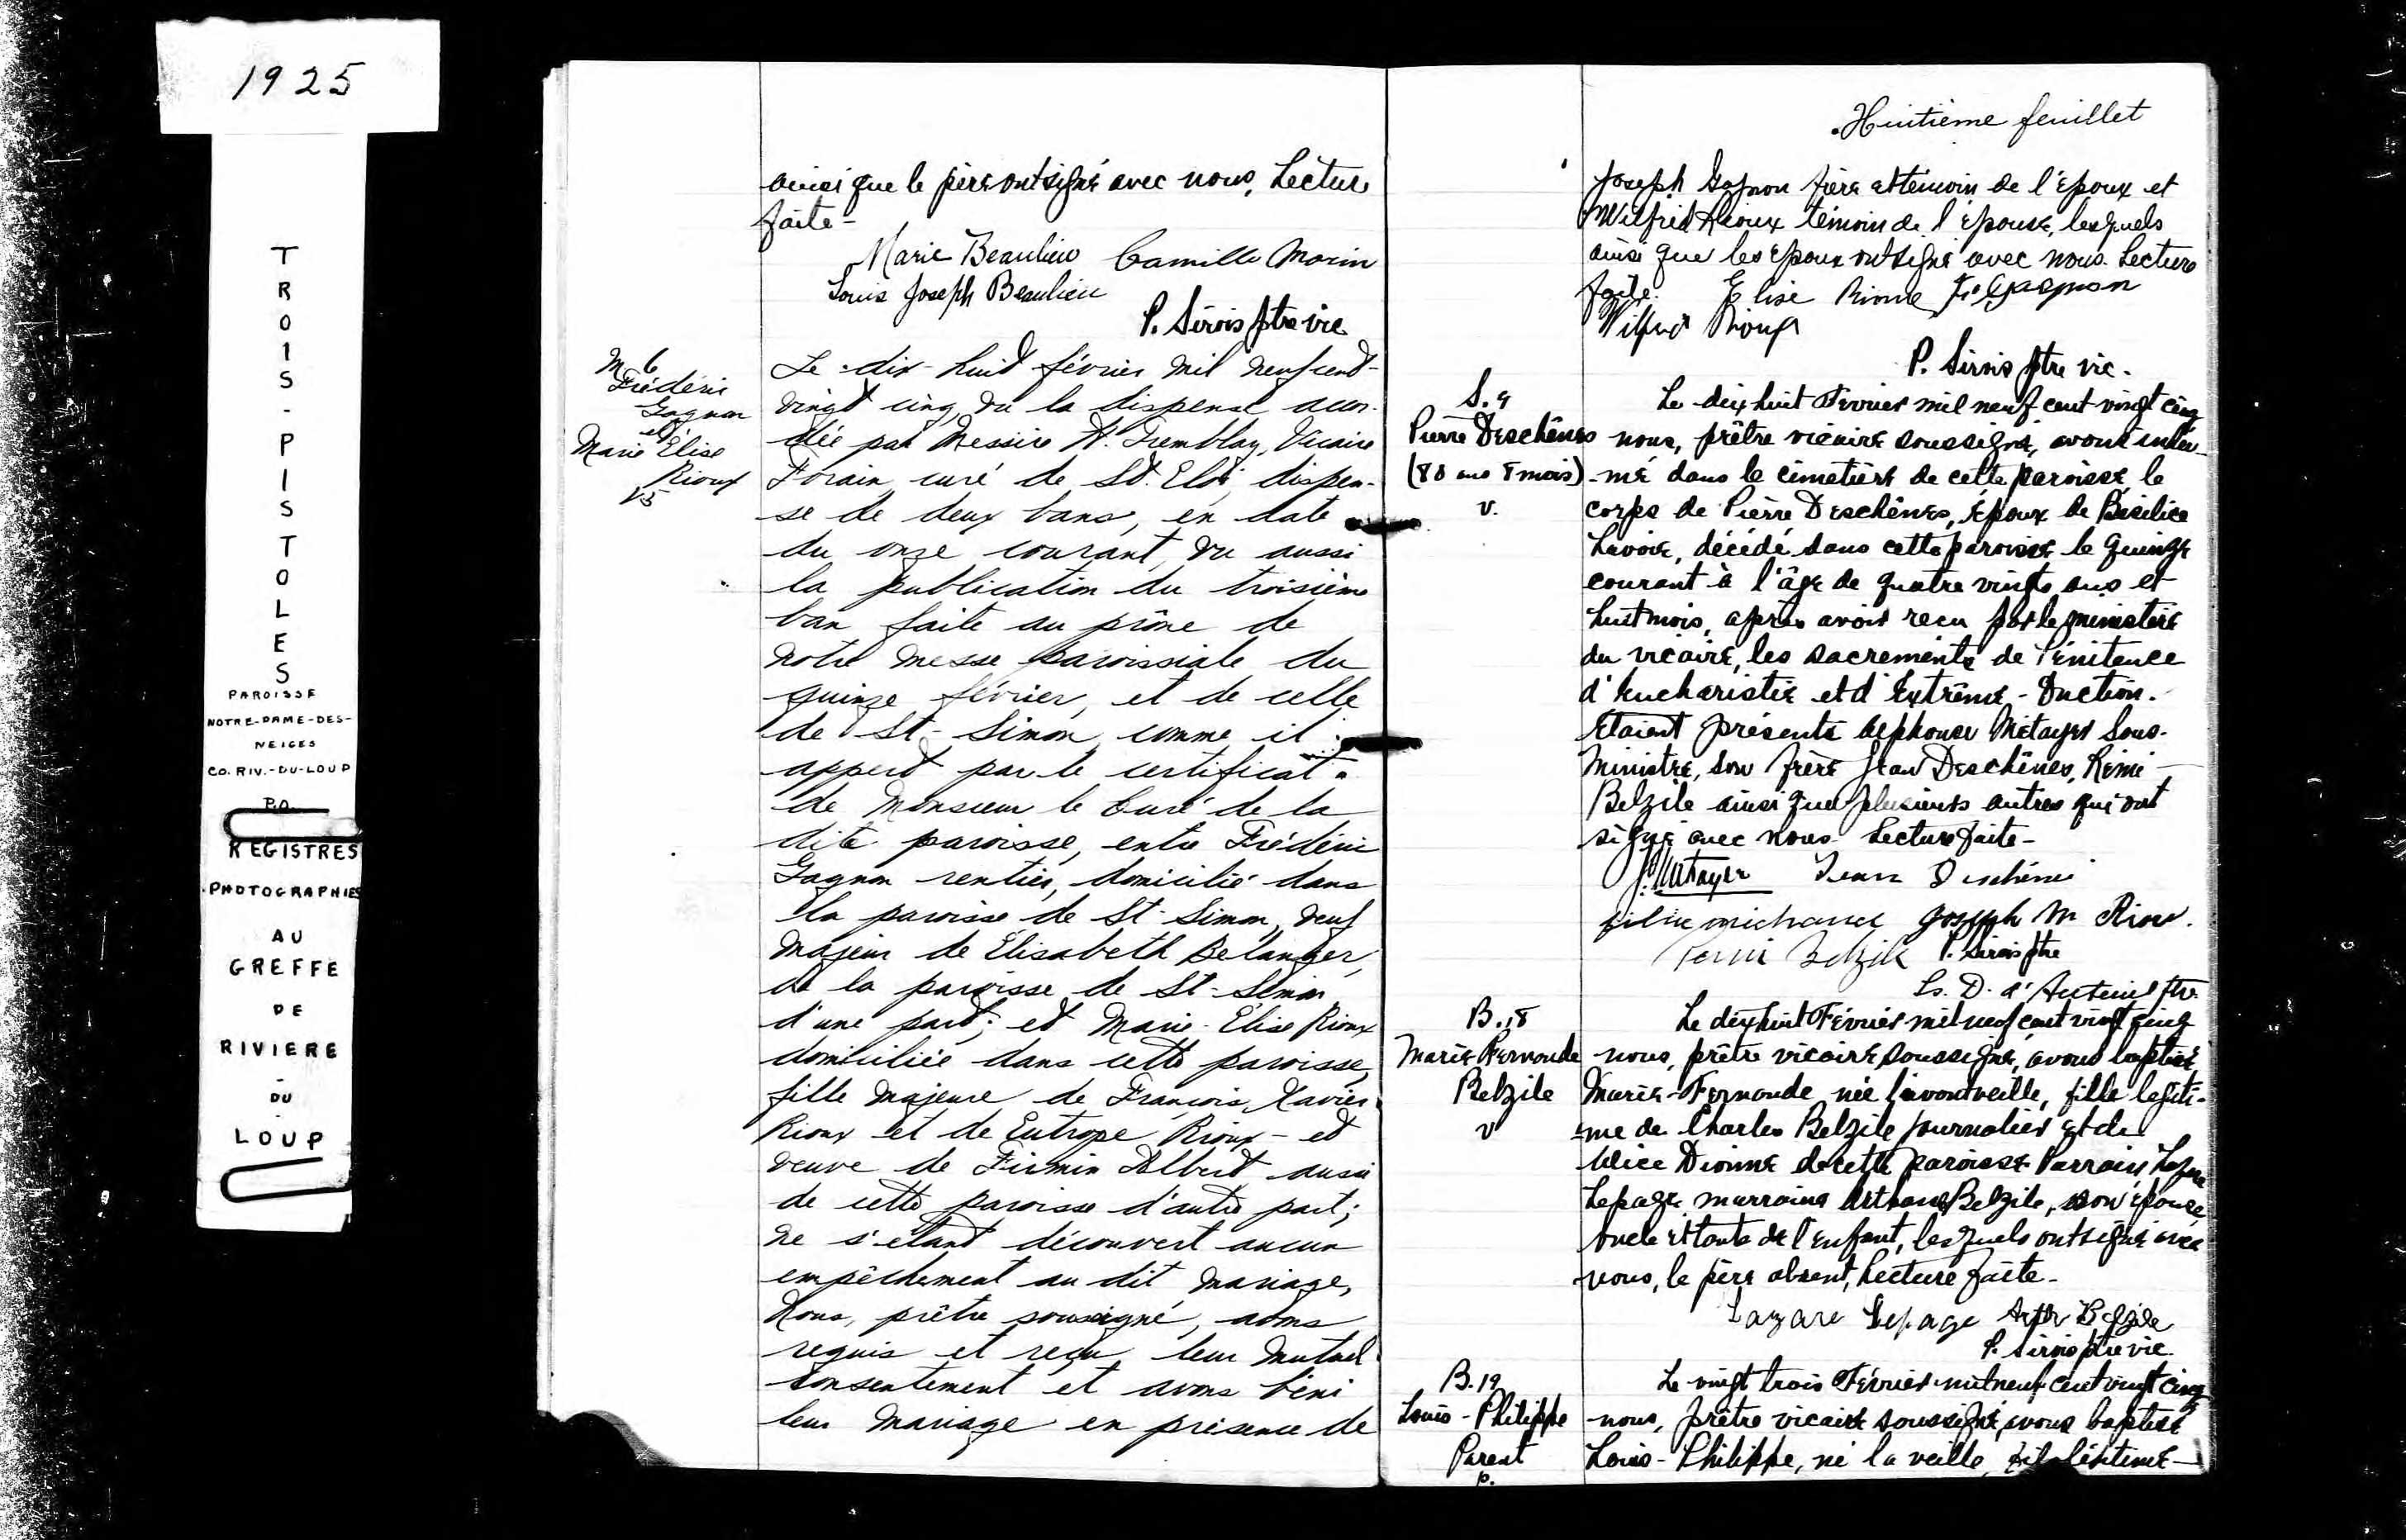 1925
TROIS-PISTOLES
PAROISSE
NOTRE-DAME-DES-
NEIGES
CO. RIV.-DU-LOUP
P.Q.
REGISTRES
PHOTOGRAPHIES
AU
GREFFE
DE
RIVIERE
-
DU
-
LOUP
ainsi que le père ont signé avec nous, Lecture
faite-
Marie Beaulieu Camille Morin
Louis Joseph Beaulieu
P. Sirois ptre vic
M 6
Frédéric
Gagnon
et
Marie Élise
Rioux
Le dix-huit février mil neuf cent-
vingt cinq, vu la dispense accor-
dée par Messire A. Tremblay, Vicaire
Forain, curé de St. Eloi, dispen-
se de deux bans, en date
du onze courant, vu aussi
la publication du troisième
ban faite au prône de
notre messe paroissiale du
quinze février, et de celle
de St-Simon, comme il
appert par le certificat
de Monsieur le Curé de la
dite paroisse, entre Frédéric
Gagnon rentier, domicilié dans
la paroisse de St-Simon, veuf
majeur de Elisabeth Belanger,
de la paroisse de St-Simon
d'une part; et Marie-Elise Rioux
domiciliée dans cette paroisse,
fille majeure de François Xavier
Rioux et de Eutrope Rioux - et
veuve de Firmin Albert aussi
de cette paroisse d'autre part;
ne s'étant découvert aucun
empêchement au dit mariage,
Nous, prêtre soussigné, avons
requis et reçu leur mutuel
consentement et avons béni
leur mariage en présence de
Huitième feuillet
Joseph Gagnon frère et témoin de l'époux et
Wilfrid Rioux témoin de l'épouse, lesquels
ainsi que les époux ont signé avec nous. Lecture
faite. Elise Rioux Fr. Gagnon
Wilfrid Rioux
P. Sirois ptre vic.
S. 9
Pierre Deschênes
(80 ans 8 mois)
v.
Le dix huit Février mil neuf cent vingt cinq
nous, prêtre vicaire soussigné, avons inhu-
-mé dans le cimetière de cette paroisse, le
corps de Pierre Deschênes, époux de Basilice
Lavoie, décédé dans cette paroisse le quinze
courant à l'âge de quatre vingts ans et
huit mois, après avoir reçu par le ministère
du vicaire, les sacrements de Pénitence
d'Eucharistie et d'Extrême-Onction.
Etaient présents Alphonse Métayer Sous-
Ministre, son frère Jean Deschênes, Rémi
Belzile ainsi que plusieurs autres qui ont
signé avec nous. Lecture faite-
Métayer Jean Deschênes
Joseph M Riou.
Remi Belzile P. Sirois ptre
Ls. D. d'Auteuil ptre
B. 18
Marie Fernande
Belzile
v
Le dix huit Février mil neuf cent vingt cinq
nous, prêtre vicaire soussigné, avons baptisé
Marie-Fernande née l'avant veille, fille légiti-
-me de Charles Belzile journalier et de
Alice Dionne de cette paroisse. Parrain Lazare
Lepage, marraine Belzile, son épouse
oncle et tante de l'enfant, lesquels ont signé avec
nous, le père absent, Lecture faite-
Lazare Lepage Belzile
P. Sirois ptre vic.
B. 19
Louis-Philippe
Parent
p.
Le vingt trois Février mil neuf cent vingt cinq
nous, prêtre vicaire soussigné, avons baptisé
Louis-Philippe, né la veille, fils légitime-